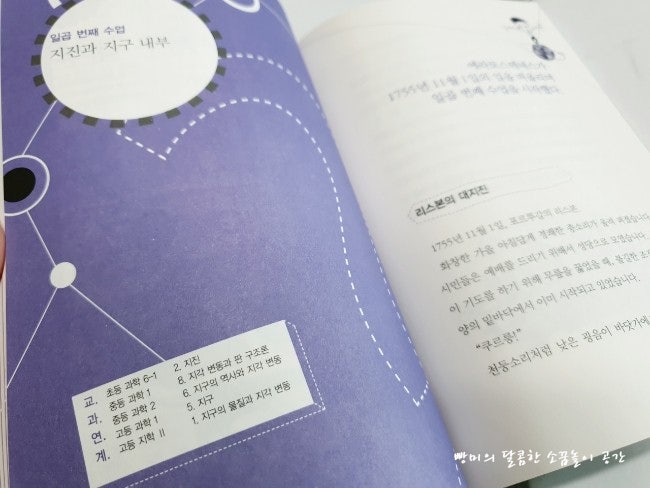 일곱 번째 수업
지진과 지구 내부
교.
과.
연.
계.
초등 과학 6-1 2. 지진
중등 과학 1 8. 지각 변동과 판 구조론
중등 과학 2 6. 지구의 역사와 지각 변동
고등 과학 1 5. 지구
고등 지학 II 1. 지구의 물질과 지각 변동
에라토스테네스가
1755년 11월 1일의 일을
일곱 번째 수업을 시작했다.
리스본의 대지진
1755년 11월 1일, 포르투갈의 리스본
화창한 가을 아침답게 경쾌한 종소리가 울려 퍼졌습니다.
시민들은 예배를 드리기 위해서 성당으로 모였습니다.
이 기도를 하기 위해 무릎을 꿇었을 때,
양의 밑바닥에서 이미 시작되고 있었습니다.
"쿠르릉!"
천둥소리처럼 낮은 굉음이 바닷가에
빵미의 달콤한 소꿉놀이 공간